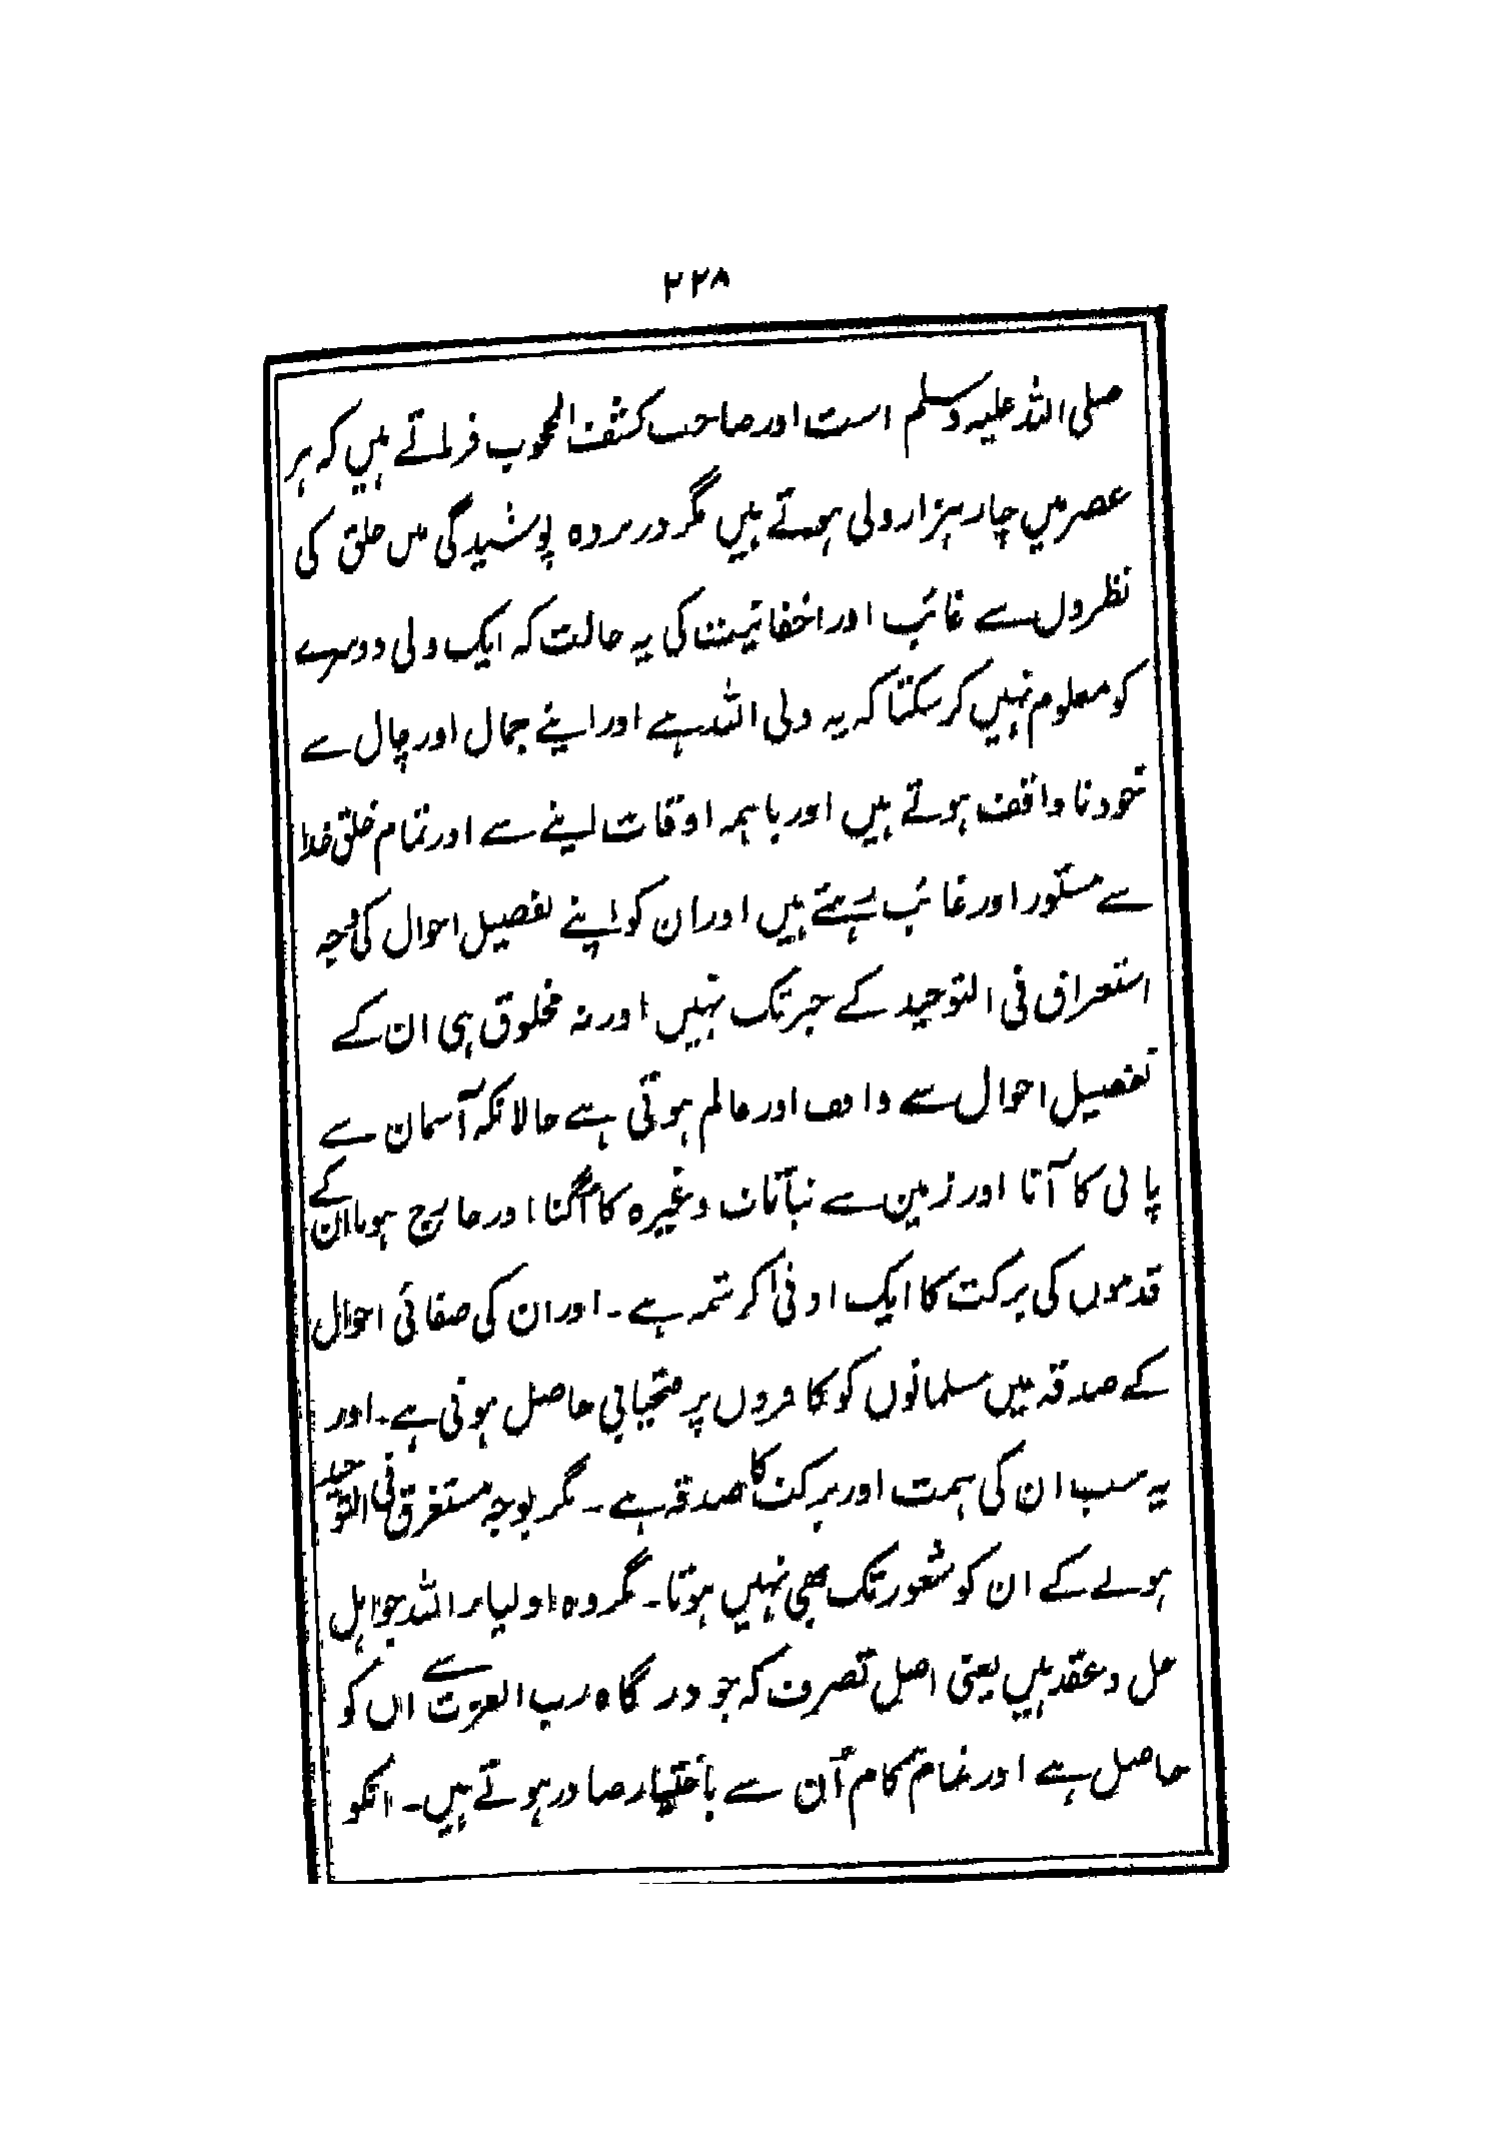 ۲۲۸
صلی اللہ علیہ وسلم است اور صاحب کشف المحجوب فرماتے ہیں کہ ہر
عصر میں چار ہزار ولی ہوتے ہیں مگر در پردہ پوشیدگی میں خلق کی
نظروں سے غائب اور اخفائیت کی یہ حالت کہ ایک ولی دوسرے
کو معلوم نہیں کر سکتا کہ یہ ولی اللہ ہے اور اپنے جمال اور چال سے
خود نا واقف ہوتے ہیں اور باہمہ اوقات اپنے سے اور تمام خلق خدا
سے مستور اور غائب رہتے ہیں اور ان کو اپنے تفصیل احوال کی بوجہ
استغراق فی التوحید کے خبر تک نہیں اور نہ مخلوق ہی ان کے
تفصیل احوال سے واقف اور عالم ہوتی ہے حالانکہ آسمان سے
پانی کا آنا اور زمین سے نباتات وغیرہ کا اگنا اور خارج ہونا ان کے
قدموں کی برکت کا ایک ادنیٰ کرشمہ ہے۔ اور ان کی صفائی احوال
کے صدقہ میں مسلمانوں کو کافروں پر فتحیابی حاصل ہوتی ہے۔ اور
یہ سب ان کی ہمت اور برکت کا صدقہ ہے۔ مگر بوجہ مستغرق فی التوحید
ہونے کے ان کو شعور تک بھی نہیں ہوتا۔ مگر وہ اولیاء اللہ جو اہل
حل و عقد ہیں یعنی اہل تصرف کہ جو درگاہ رب العزت سے ان کو
حاصل ہے اور تمام کام اُن سے باختیار صادر ہوتے ہیں۔ انکو